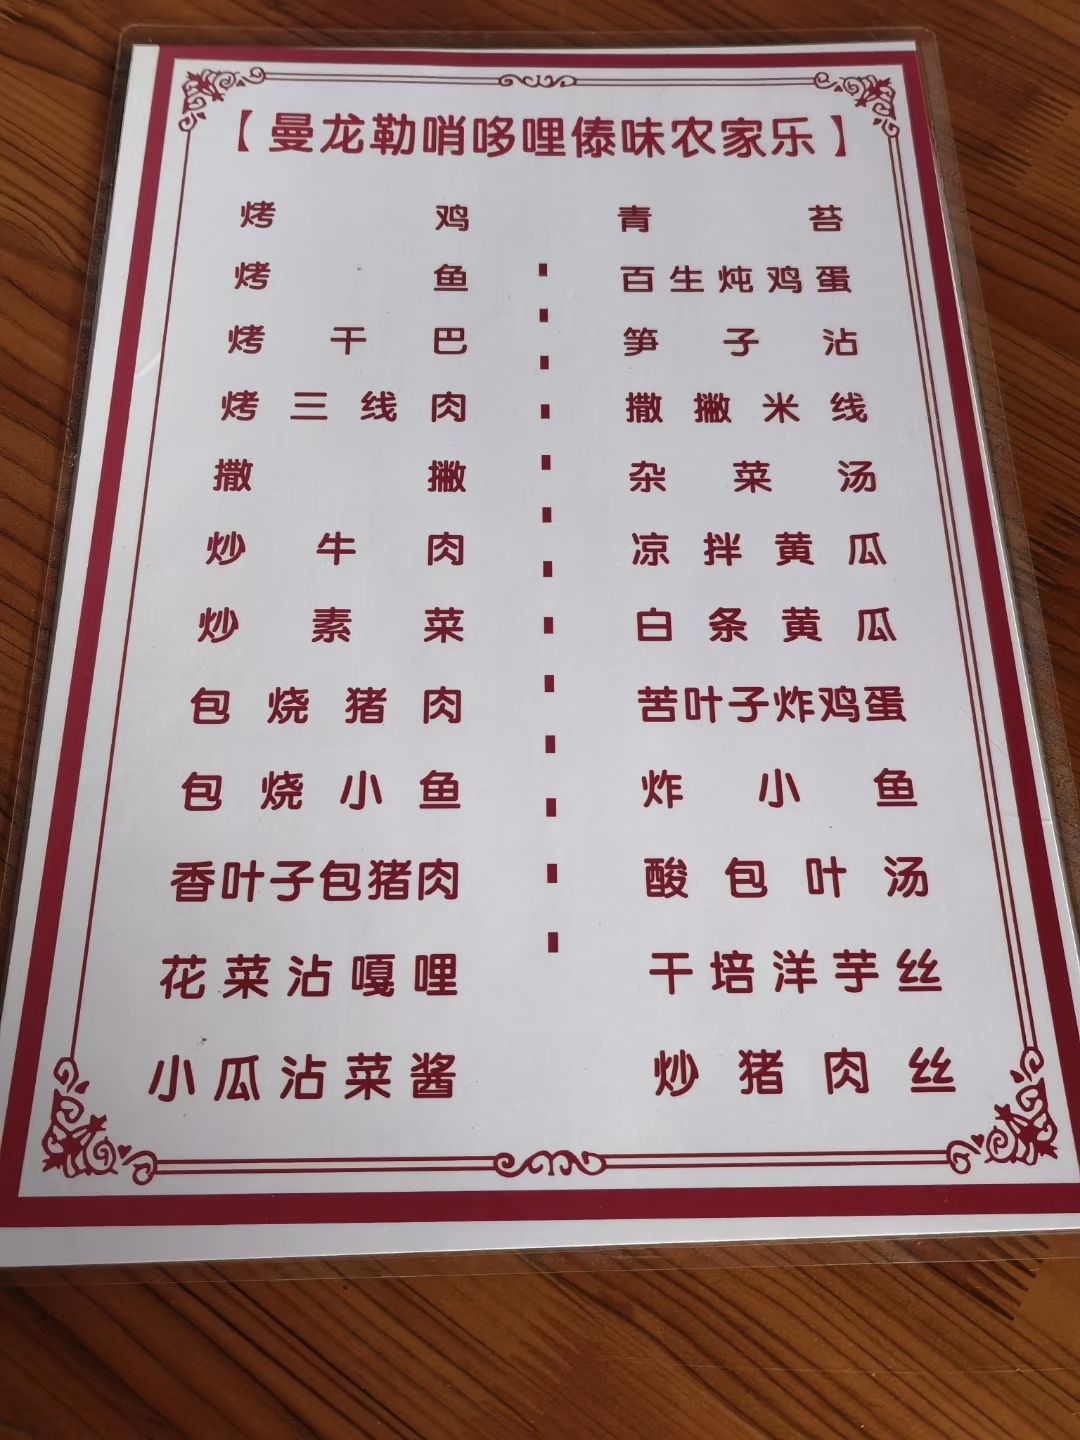 【曼龙勒哨哆哩傣味农家乐】
烤鸡
烤鱼
烤干巴
烤三线肉
撒撇
炒牛肉
炒素菜
包烧猪肉
包烧小鱼
香叶子包猪肉
花菜沾嘎哩
小瓜沾菜酱
青苔
百生炖鸡蛋
笋子沾
撒撇米线
杂菜汤
凉拌黄瓜
白条黄瓜
苦叶子炸鸡蛋
炸小鱼
酸包叶汤
干培洋芋丝
炒猪肉丝